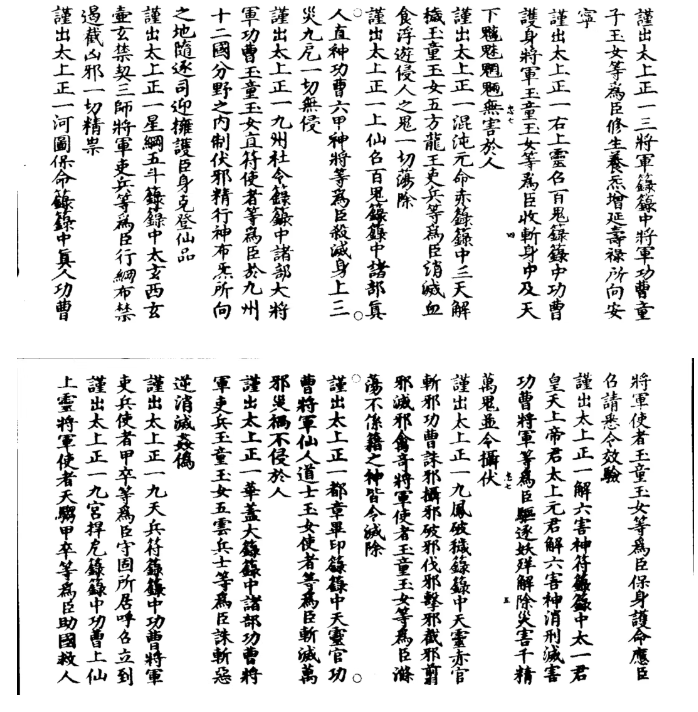 謹出太上正一三將軍籙籙中將軍功曹童
子玉女等爲臣修生養炁增延壽祿所向安
寧
謹出太上正一右上靈召百鬼籙籙中功曹
護身將軍玉童玉女等爲臣收斬身中及天
七 四
下魑魅魍魎無害於人
謹出太上正一混沌元命赤籙籙中三天解
穢玉童玉女五方龍王吏兵等爲臣消滅血
食浮遊侵人之鬼一切蕩除
謹出太上正一上仙召百鬼籙籙中諸部眞
人直神功曹六甲神將等爲臣殺滅身上三
災九厄一切無侵
謹出太上正一九州社令籙籙中諸部大將
軍功曹玉童玉女直符使者等爲臣於九州
十二國分野之内制伏邪精行神布炁所向
之地隨逐司迎擁護臣身克登仙品
謹出太上正一星綱五斗籙籙中太玄西玄
壷玄禁契三師將軍吏兵等爲臣行綱布禁
遏截凶邪一切精祟
謹出太上正一河圖保命籙籙中眞人功曹
將軍使者玉童玉女等爲臣保身護命應臣
召請悉令效驗
謹出太上正一解六害神符籙籙中太一君
皇天上帝君太上元君解六害神消刑滅害
功曹將軍等爲臣驅逐妖殃解除災害千精
七 五
萬鬼並令攝伏
謹出太上正一九鳳破穢籙籙中天靈赤官
斬邪功曹誅邪攝邪破邪伐邪擊邪截邪翦
邪滅邪禽奇將軍使者玉童玉女等爲臣滌
蕩不係籍之神皆令滅除
謹出太上正一都章畢印籙籙中天靈官功
曹將軍仙人道士玉女使者等爲臣斬滅萬
邪災禍不侵於人
謹出太上正一華蓋大籙籙中諸部功曹將
軍吏兵玉童玉女五雲兵士等爲臣誅斬惡
逆消滅姦僞
謹出太上正一九天兵符籙籙中功曹將軍
吏兵使者甲卒等爲臣守固所居呼召立到
謹出太上正一九宮捍厄籙籙中功曹上仙
上靈將軍使者天騶甲卒等爲臣助國救人